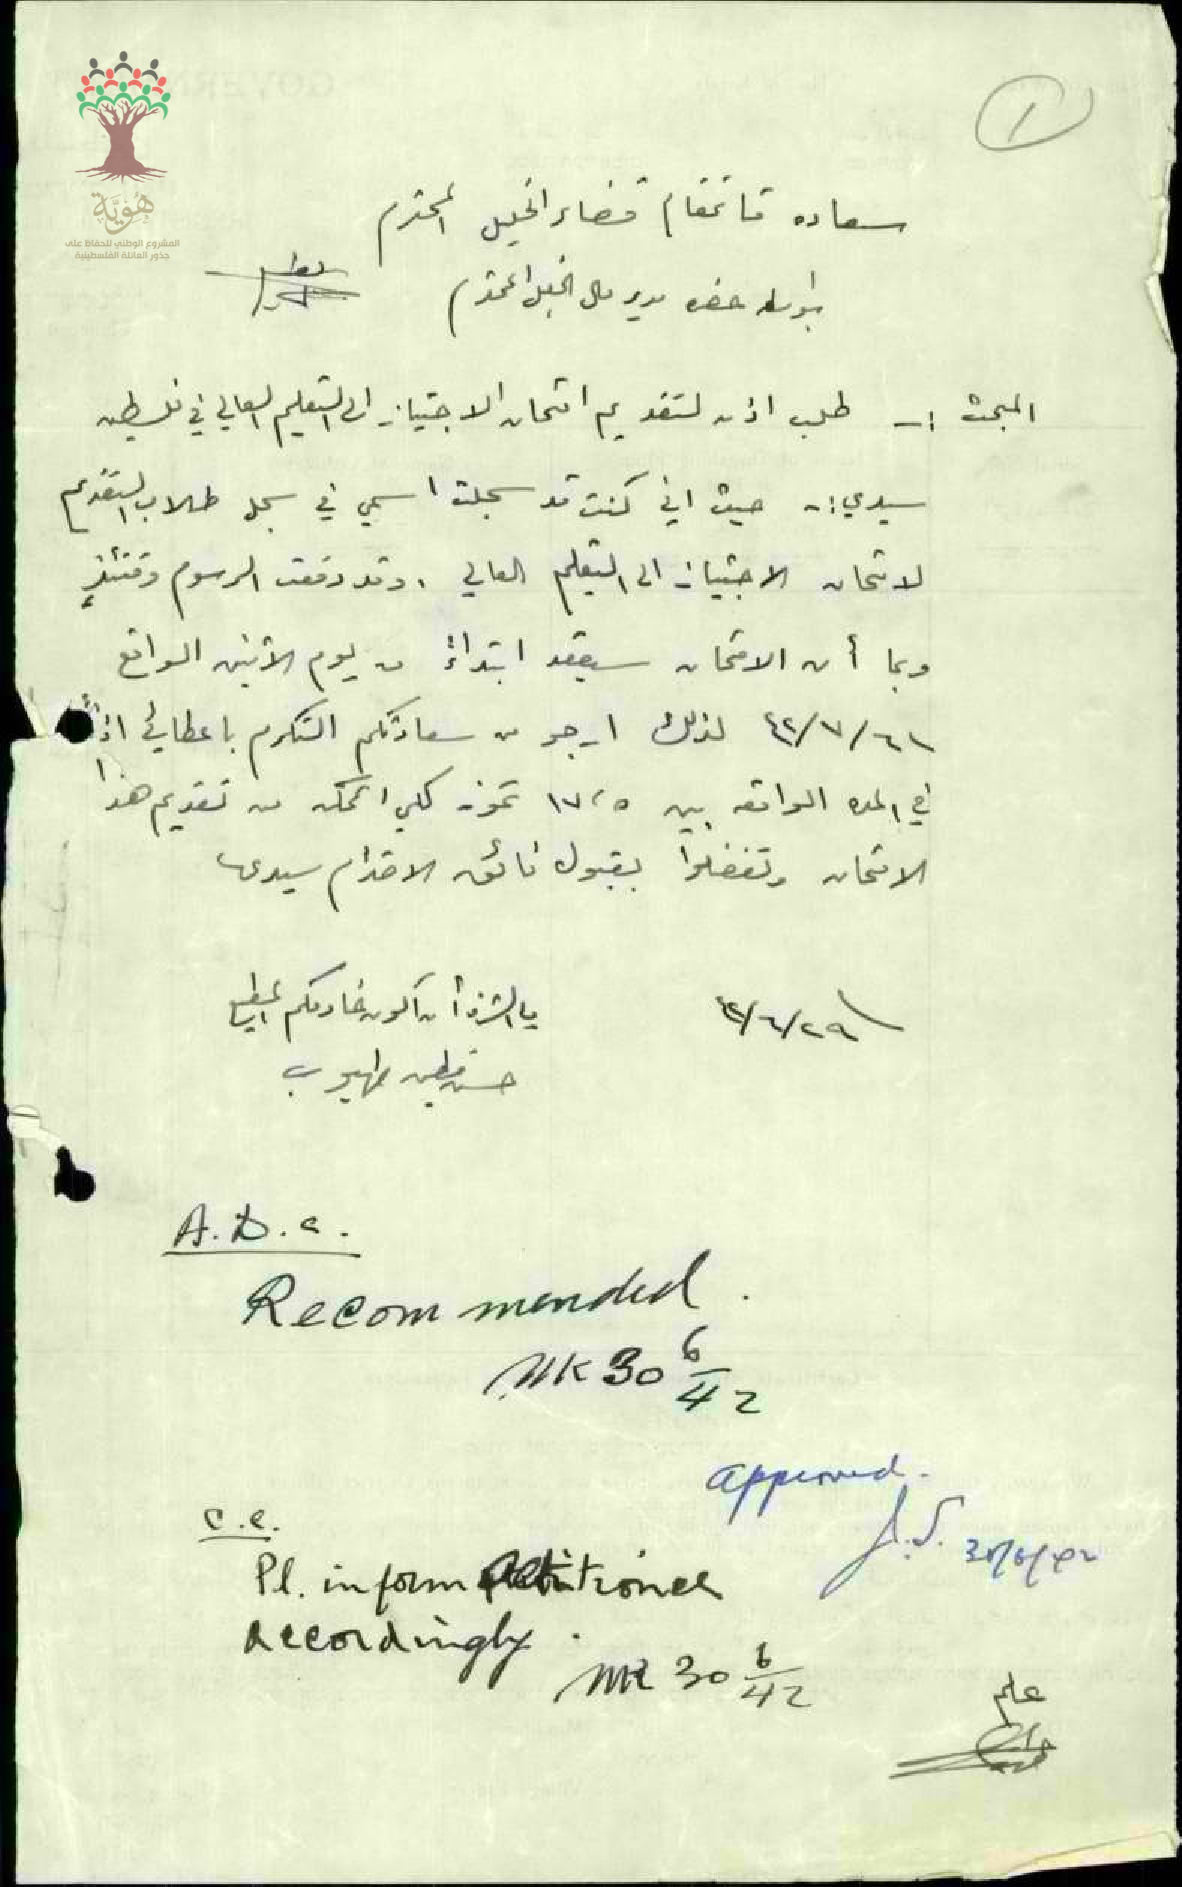 ١
هُوِيَّة
المشروع الوطني للحفاظ على
جذور العائلة الفلسطينية
سعاده قائمقام قضاء الخليل المحترم
بواسطة حضرة مدير مال الخليل المحترم
المبحث :- طلب اذن لتقديم امتحان الاجتياز الى التعليم العالي في فلسطين
سيدي :- حيث اني كنت قد سجلت اسمي في سجل طلاب التقديم
لامتحان الاجتياز الى التعليم العالي . وقد دفعت الرسوم وقتئذٍ
وبما أن الامتحان سيعقد ابتداءً من يوم الاثنين الواقع
٤٢/٧/٦ لذلك ارجو من سعادتكم التكرم باعطائي اذناً
في المده الواقعه بين ٥، ١٧ تموز لكي اتمكن من تقديم هذا
الامتحان وتفضلوا بقبول فائق الاحترام سيدي
٤٢/٦/٢٩
لي الشرف أن أكون خادمكم المطيع
حسن
A.D.C.
Recommended.
MK 30 6/42
approved.
J.S. 30/6/42
C.C.
Pl. inform petitioner
accordingly.
MK 30 6/42
علم